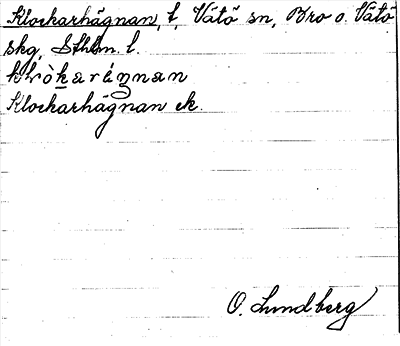 Klockarhägnan, t, Vätö sn, Bro o. Vätö
skg, Sthlm. l.
Klockarhägnan ek.
O. Lundberg